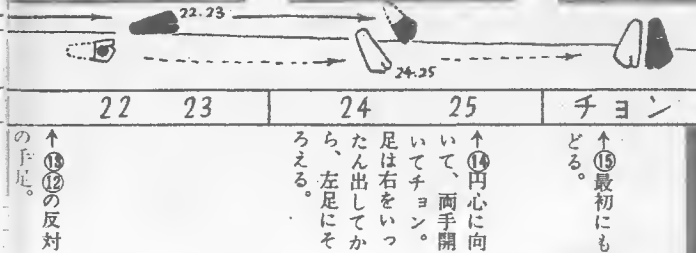 22.23
24.25
22 23 24 25 チョン
↑⑮最初にも
どる。
↑⑭円心に向
いて、両手開
いてチョン。
足は右をいっ
たん出してか
ら、左足にそ
ろえる。
↑⑬⑫の反対
の手足。